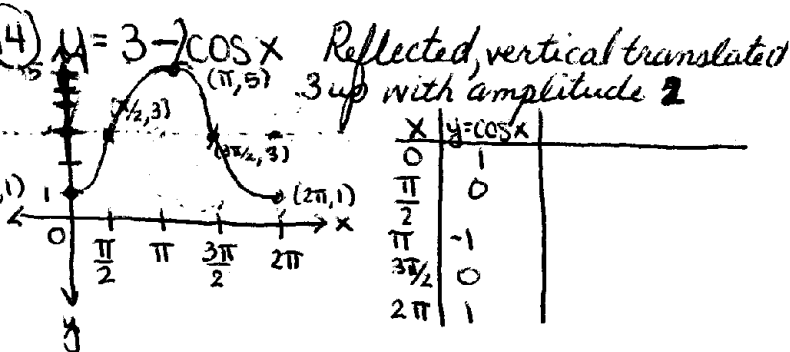 4) y = 3-2cosx Reflected, vertical translated
3 up with amplitude 2
5
(π,5)
π/2,3)
(3π/2,3)
,1) 1 (2π,1)
0 π/2 π 3π/2 2π x
y
x y=cosx
0 1
π/2 0
π -1
3π/2 0
2π 1